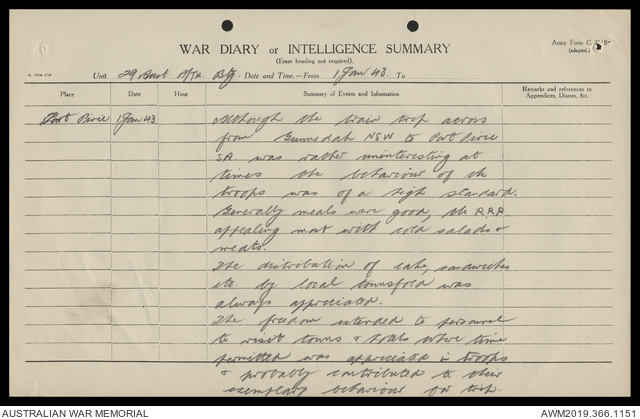 WAR DIARY or INTELLIGENCE SUMMARY
(Erase heading not required).
Army Form C.
(adapted.)
Unit 29 Aust A/Tk Bty. Date and Time.—From 1 Jan 43 To
Place Date Hour Summary of Events and Information Remarks and references to Appendices, Diaries, &c.
Port Pirie 1 Jan 43 Although the train trip across
from Gunnedah NSW to Port Pirie
SA. was rather uninteresting at
times the behaviour of the
troops was of a high standard.
Generally meals were good, the R.R.P.
appealing most with cold salads &
meats.
The distribution of cake, sandwiches
etc. by local townsfold was
always appreciated.
The freedom extended to personnel
to visit towns & where time
permitted was appreciated troops
& probably contributed to their
exemplary behaviour for trip.
AUSTRALIAN WAR MEMORIAL
AWM2019.366.1151